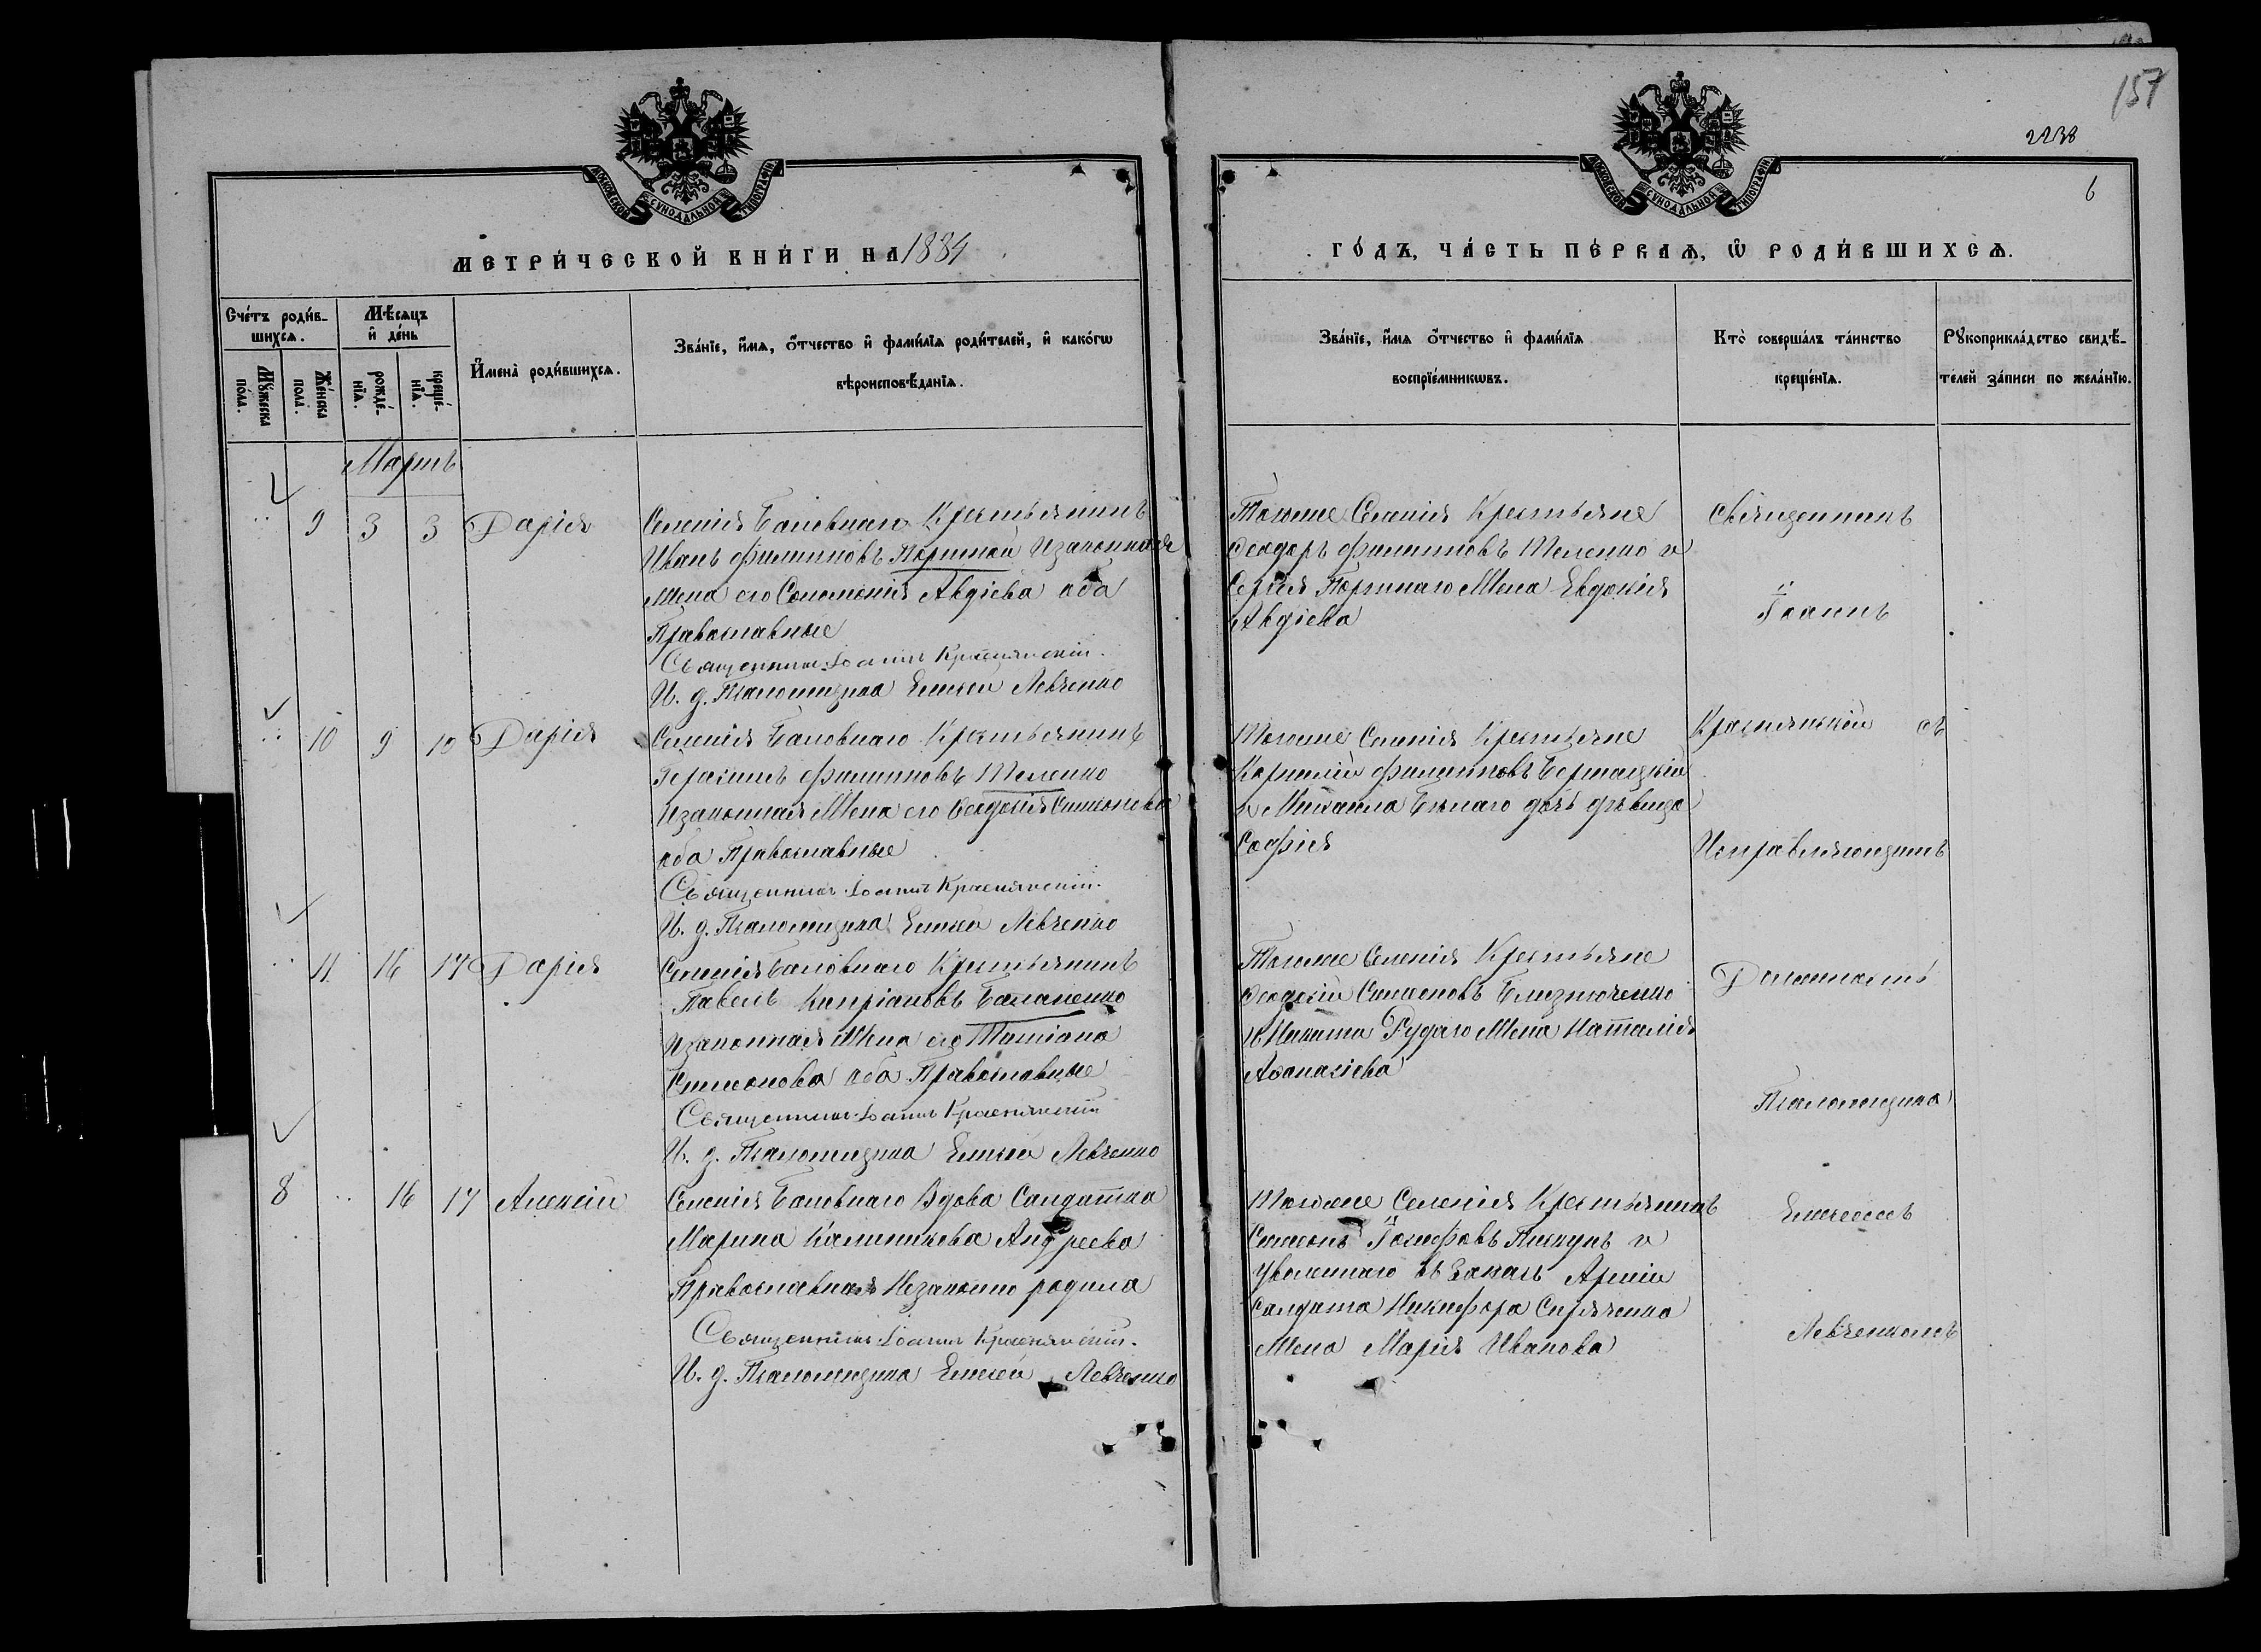 157
2238
6
МОСКОВСКОЙ СѴНОДАЛЬНОЙ ТИПОГРАФІИ
МОСКОВСКОЙ СѴНОДАЛЬНОЙ ТИПОГРАФІИ
МЕТРИ́ЧЕСКОЙ КНИ́ГИ НА 1884
ГО́ДЪ, ЧА́СТЬ ПЕ́РВАѦ, Ѿ РОДИ́ВШИХСѦ.
Сче́тъ роди́в-
шихсѧ.
Мѣ́сѧцъ
и҆ де́нь
Мꙋ́жеска
по́ла.
Же́нска
пола̀.
рожде́-
нїѧ.
креще́-
нїѧ.
И҆мена̀ роди́вшихсѧ.
Зва́нїе, и҆́мѧ, ѻ҆́тчество и҆ фами́лїѧ роди́телей, и҆ како́гѡ
вѣроисповѣ́данїѧ.
Зва́нїе, и҆́мѧ ѻ҆́тчество и҆ фами́лїѧ
воспрїе́мникѡвъ.
Кто̀ соверша́лъ та́инство
креще́нїѧ.
Рꙋкоприкла́дство свидѣ́-
телей за́писи по жела́нїю.
Мартъ
9 3 3 Дарія
Селенія Баловнаго Крестьянинъ
Иванъ Филиповъ Портной Изаконная
Жена его Соломонія Авдіева оба
Православные
Священникъ Іоаннъ Краснянскій.
И. д. Псаломщика Елисей Левченко
Тогоже Селенія Крестьяне
Ѳеодоръ Филиповъ Теленко и
Сергія Портнаго Жена Евдокія
Авдіева
Священникъ
Іоаннъ
10 9 10 Дарія
Селенія Баловнаго Крестьянинъ
Герасимъ Филиповъ Теленко
Изаконная Жена его Ѳеодосія Симеонова
оба Православные
Священникъ Іоаннъ Краснянскій.
И. д. Псаломщика Елисей Левченко
Тогоже Селенія Крестьяне
Корнилій Филиповъ
и Михаила Белаго дочь дѣвица
Софія
Краснянскій съ
Исправляющимъ
11 16 17 Дарія
Селенія Баловнаго Крестьянинъ
Павелъ Кипріановъ Балаченко
Изаконная Жена его Татіана
Симеонова оба Православные
Священникъ Іоаннъ Краснянскій
И. д. Псаломщика Елисей Левченко
Тогоже Селенія Крестьяне
Ѳеодосій Симеоновъ Близнюченко
и Никиты Рудаго Жена Наталія
Аѳанасіева
Должность
Псаломщика
8 16 17 Алексій
Селенія Баловнаго Вдова Салдатка
Марина Калиникова Андреева
Православная Незаконно родила
Священникъ Іоаннъ Краснянскій.
И. д. Псаломщика Елисей Левченко
Тогоже Селенія Крестьянинъ
Симеонъ Іосифовъ Пискунъ и
Уволеннаго въ Запасъ Арміи
Салдата Никифора Сиряченка
Жена Марія Иванова
Елисеемъ
Левченкомъ